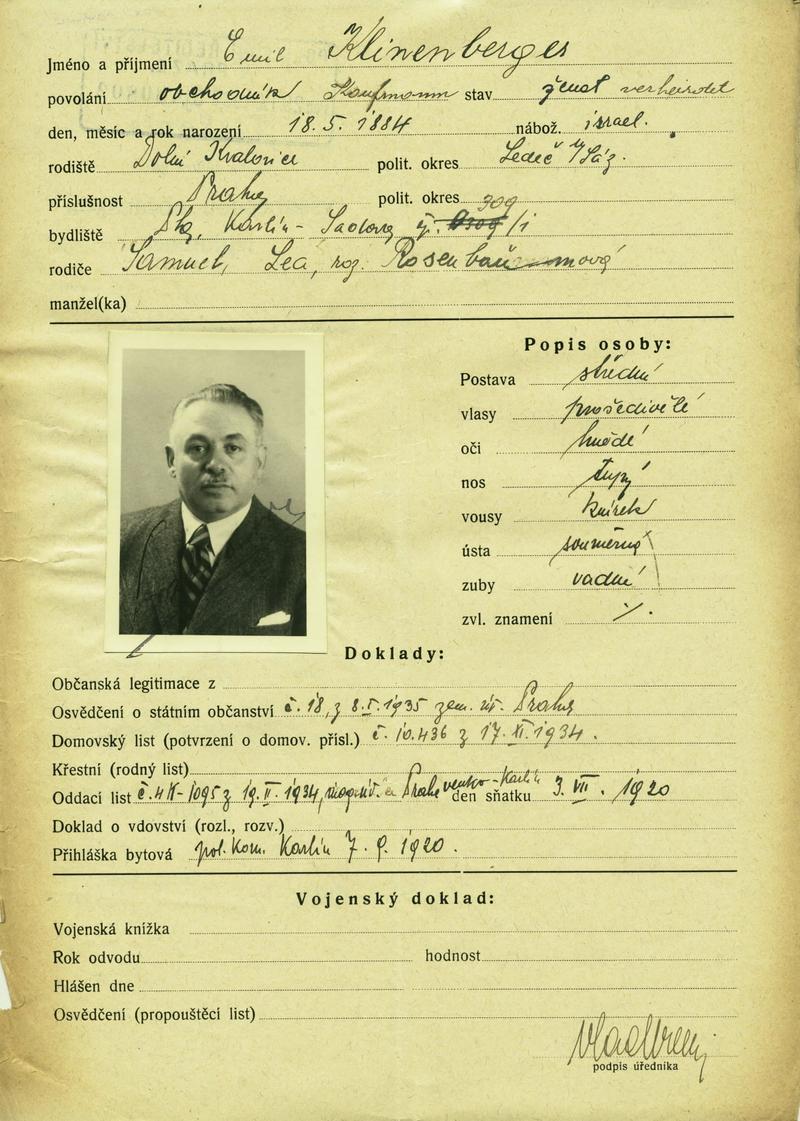 Jméno a příjmení Emil Klinenberger
povolání obchodník Kaufmann stav ženat verheiratet
den, měsíc a rok narození 18.5.1884 nábož. israel.
rodiště Dolní Kralovice polit. okres Ledeč n/Sáz.
příslušnost Praha polit. okres
bydliště Karlín - Sadová č. 309/I
rodiče Samuel, Lea, roz. Rosenbau mová
manžel(ka)
Popis osoby:
Postava střední
vlasy prošedivělé
oči hnědé
nos tupý
vousy knírek
ústa souměrná
zuby vadné
zvl. znamení
Doklady:
Občanská legitimace z
Osvědčení o státním občanství č. 18, z 8.I.1935 zem. úř. Praha
Domovský list (potvrzení o domov. přísl.) č. 10.436 z 17.XI.1934.
Křestní (rodný list)
Oddací list z 19.II.1934, Praha venkov - Karlín den sňatku 3.VII.1920
Doklad o vdovství (rozl., rozv.)
Přihláška bytová pol. kom. Karlín 7.9.1920.
Vojenský doklad:
Vojenská knížka
Rok odvodu hodnost
Hlášen dne
Osvědčení (propouštěcí list)
podpis úředníka